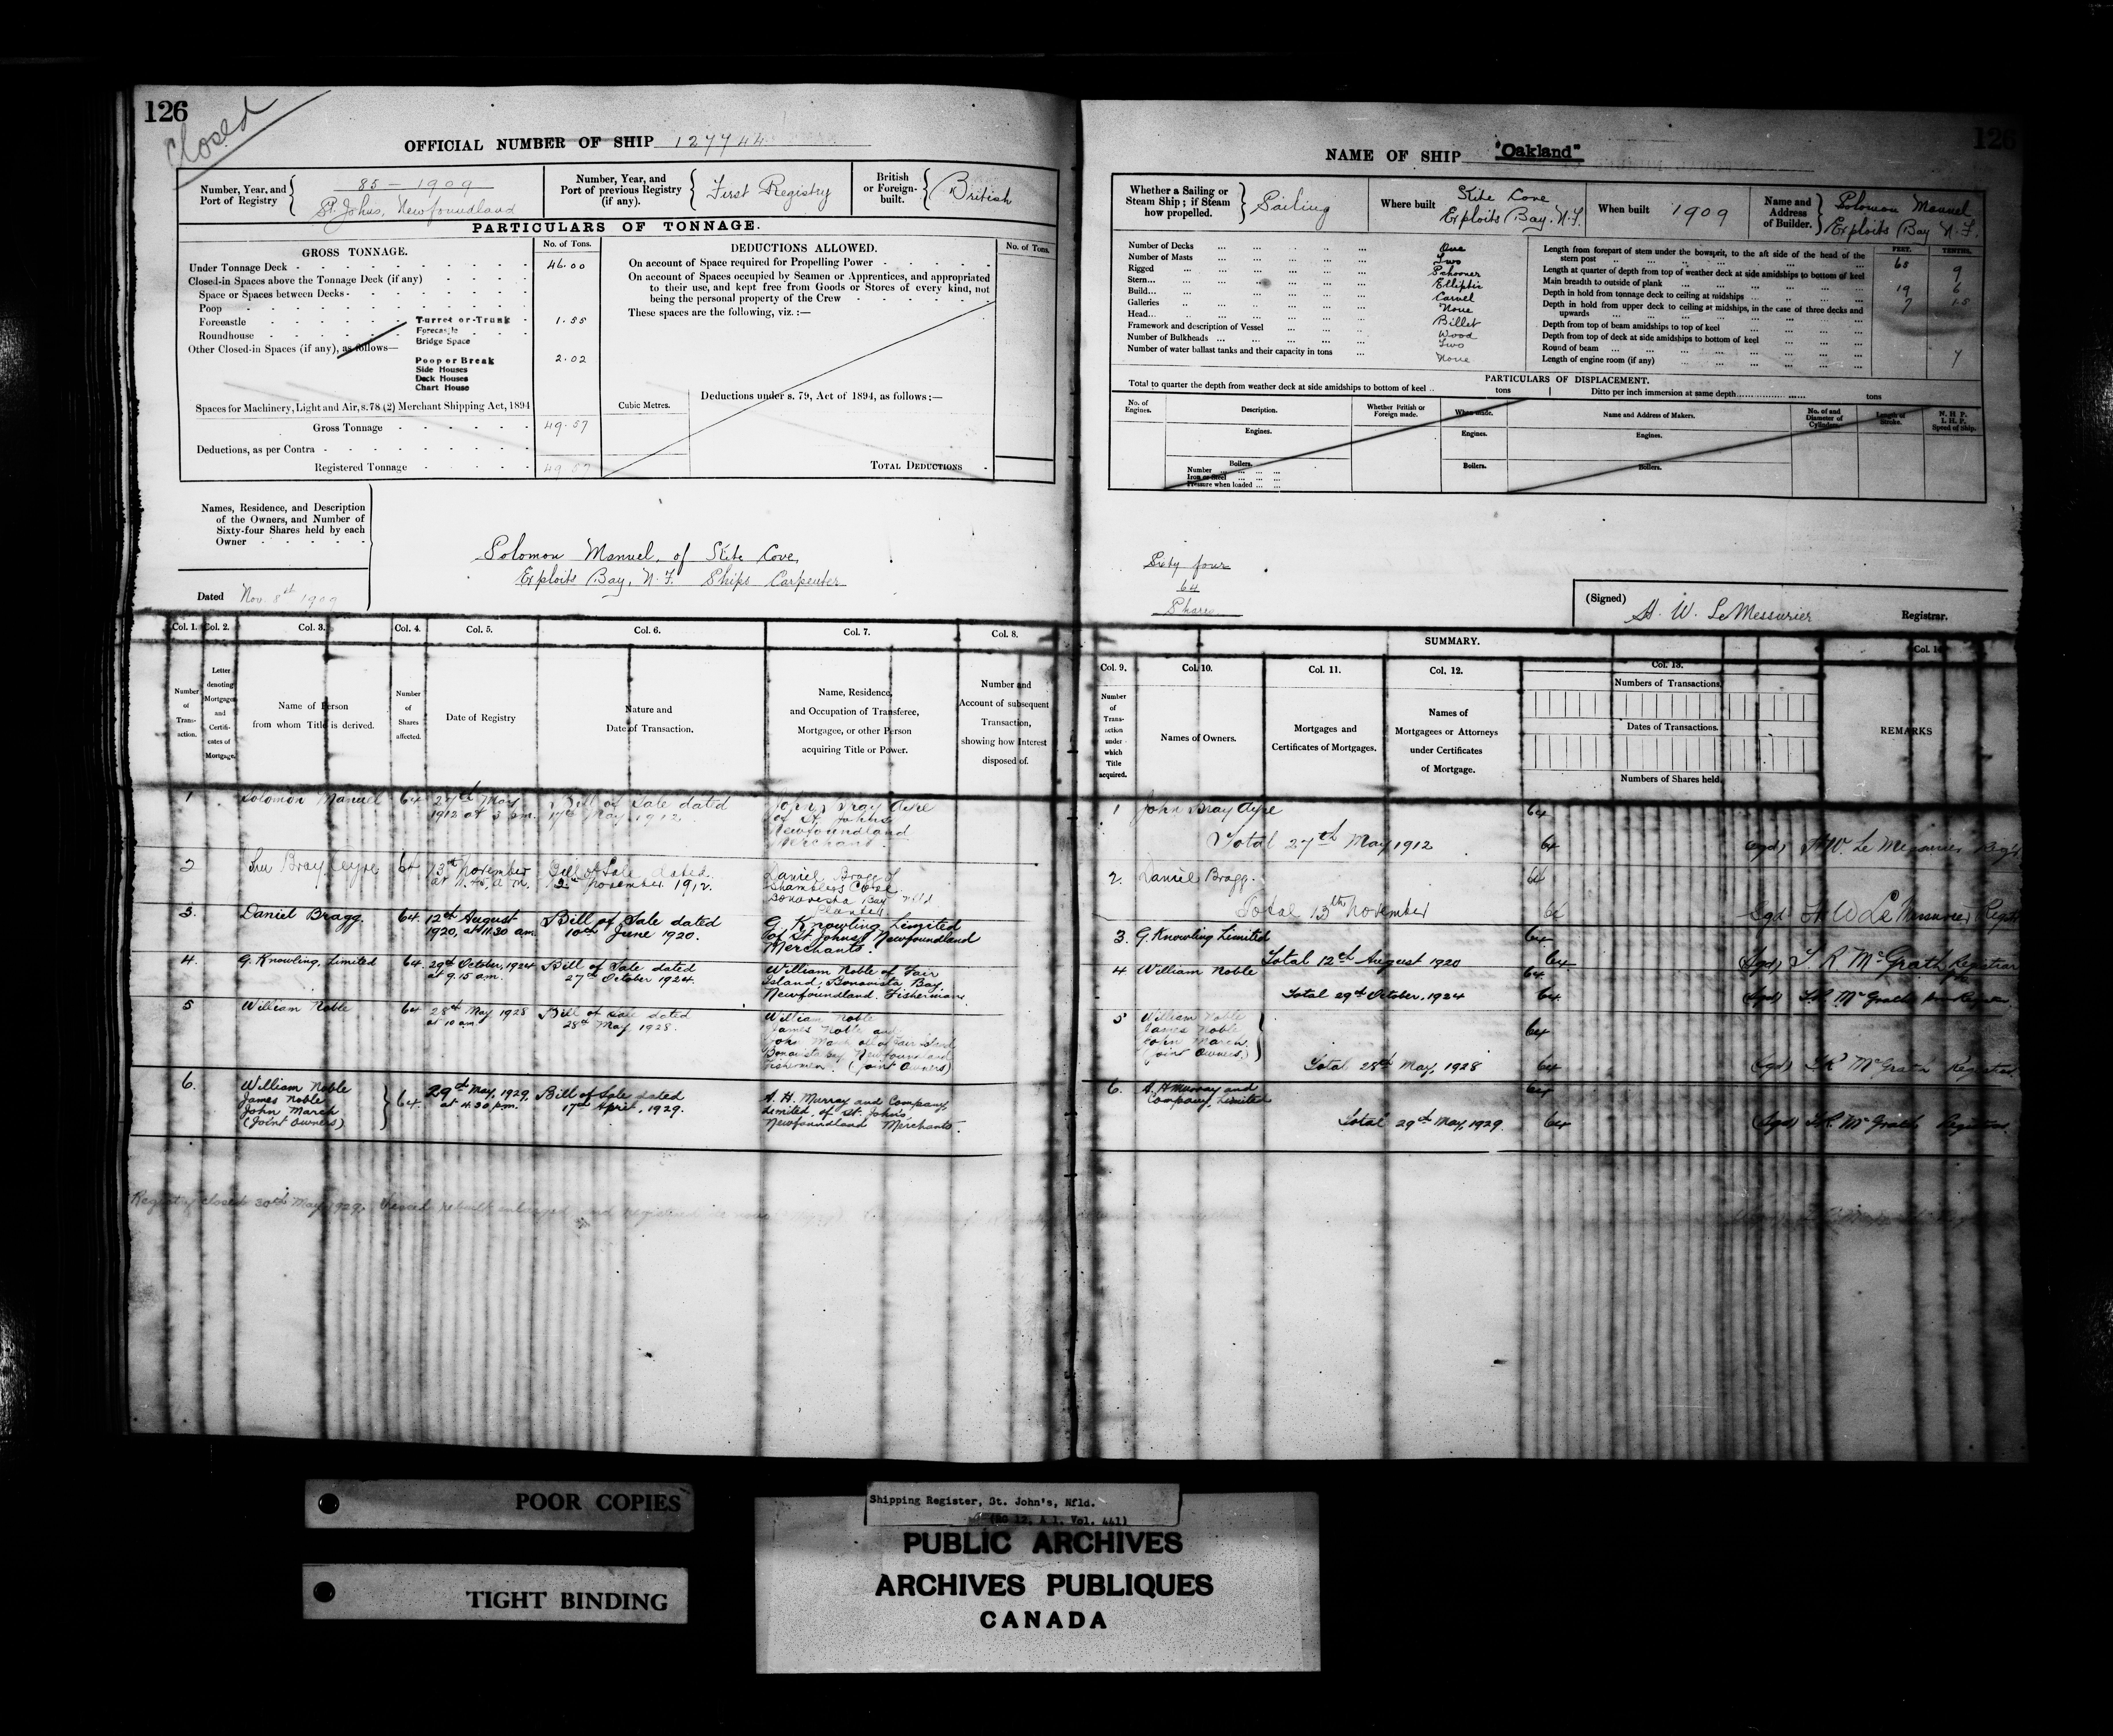 126
Closed
OFFICIAL NUMBER OF SHIP 127744
Number, Year, and Port of Registry
85 - 1909
St. Johns, Newfoundland
Number, Year, and Port of previous Registry (if any).
First Registry
British or Foreign-built.
British
PARTICULARS OF TONNAGE.
GROSS TONNAGE.
No. of Tons.
DEDUCTIONS ALLOWED.
No. of Tons.
Under Tonnage Deck
46.00
Closed-in Spaces above the Tonnage Deck (if any)
Space or Spaces between Decks
Poop
Forecastle
Roundhouse
Other Closed-in Spaces (if any), as follows—
Turret or Trunk
1.55
Forecastle
Bridge Space
Poop or Break
2.02
Side Houses
Deck Houses
Chart House
Spaces for Machinery, Light and Air, s. 78 (2) Merchant Shipping Act, 1894
Gross Tonnage
49.57
Deductions, as per Contra
Registered Tonnage
49.57
On account of Space required for Propelling Power
On account of Spaces occupied by Seamen or Apprentices, and appropriated
to their use, and kept free from Goods or Stores of every kind, not
being the personal property of the Crew
These spaces are the following, viz. :—
Cubic Metres.
Deductions under s. 79, Act of 1894, as follows :—
TOTAL DEDUCTIONS
Names, Residence, and Description
of the Owners, and Number of
Sixty-four Shares held by each
Owner
Solomon Manuel, of Slite Cove,
Exploits Bay, N.F. Ships Carpenter
Dated Nov. 8st 1909
Col. 1. Col. 2. Col. 3. Col. 4. Col. 5. Col. 6. Col. 7. Col. 8.
Number of Transaction.
Letter denoting Mortgages and Certificates of Mortgage.
Name of Person from whom Title is derived.
Number of Shares affected.
Date of Registry
Nature and Date of Transaction.
Name, Residence, and Occupation of Transferee, Mortgagee, or other Person acquiring Title or Power.
Number and Account of subsequent Transaction, showing how Interest disposed of.
1 Solomon Manuel 64 27th May 1912 at 3 pm. Bill of Sale dated 17th May 1912.
John Bray Ayre
of St. Johns
Newfoundland
Merchant.
2 John Bray Ayre 64 13th November at 11.45 a.m. Bill of Sale dated 12th November 1912.
Daniel Bragg of
Shamblers Cove
Bonavista Bay Nfld
Planter
3. Daniel Bragg. 64. 12th August 1920, at 11.30 am. Bill of Sale dated 10th June 1920.
G. Knowling Limited
of St. Johns, Newfoundland
Merchants.
4. G. Knowling, Limited 64. 29th October, 1924 at 9.15 am. Bill of Sale dated 27th October 1924.
William Noble of Fair
Island, Bonavista Bay,
Newfoundland. Fisherman.
5 William Noble 64 28th May 1928 at 10 am. Bill of Sale dated 28th May 1928.
William Noble
James Noble and
John March all of Fair Island
Bonavista Bay, Newfoundland
Fishermen. (Joint Owners)
6. William Noble
James Noble
John March
(Joint Owners)
64. 29th May, 1929, at 4.30 p.m. Bill of Sale dated 17th April, 1929.
A. H. Murray and Company,
Limited, of St. John's,
Newfoundland Merchants.
Registry closed 30th May 1929. Vessel rebuilt enlarged and registered
126
NAME OF SHIP "Oakland"
Whether a Sailing or Steam Ship; if Steam how propelled.
Sailing
Where built
Slite Cove
Exploits Bay. N.F.
When built
1909
Name and Address of Builder.
Solomon Manuel
Exploits Bay N.F.
Number of Decks One
Number of Masts Two
Rigged Schooner
Stern Elliptic
Build Carvel
Galleries None
Head Billet
Framework and description of Vessel Wood
Number of Bulkheads Two
Number of water ballast tanks and their capacity in tons None
FEET. TENTHS.
Length from forepart of stem under the bowsprit, to the aft side of the head of the stern post 68 9
Length at quarter of depth from top of weather deck at side amidships to bottom of keel
Main breadth to outside of plank 19 6
Depth in hold from tonnage deck to ceiling at midships 7 1.5
Depth in hold from upper deck to ceiling at midships, in the case of three decks and upwards
Depth from top of beam amidships to top of keel
Depth from top of deck at side amidships to bottom of keel
Round of beam 7
Length of engine room (if any)
PARTICULARS OF DISPLACEMENT.
Total to quarter the depth from weather deck at side amidships to bottom of keel tons
Ditto per inch immersion at same depth tons
No. of Engines.
Description.
Whether British or Foreign made.
When made.
Name and Address of Makers.
No. of and Diameter of Cylinders.
Length of Stroke.
N. H. P.
I. H. P.
Speed of Ship.
Engines. Engines. Engines.
Boilers. Boilers. Boilers.
Number
Iron or Steel
Pressure when loaded
Sixty four
64
Shares
(Signed) H. W. LeMessurier Registrar.
SUMMARY.
Col. 9. Col. 10. Col. 11. Col. 12. Col. 13. Col. 14
Number of Transaction under which Title acquired.
Names of Owners.
Mortgages and Certificates of Mortgages.
Names of Mortgagees or Attorneys under Certificates of Mortgage.
Numbers of Transactions.
Dates of Transactions.
Numbers of Shares held.
REMARKS
1 John Bray Ayre 64
Total 27th May 1912 64 (sgd) H W. Le Messurier Reg'r
2. Daniel Bragg. 64
Total 13th November 64 Sgd H W Le Messurier Reg'r
3. G. Knowling Limited 64
Total 12th August 1920 64 (Sgd) L R McGrath Registrar
4 William Noble 64
Total 29th October, 1924 64 (Sgd)
5 William Noble
James Noble
John March.
(Joint Owners)
64
Total 28th May, 1928 64 (Sgd) McGrath Registrar.
6. A. H Murray and
Company, Limited
64
Total 29th May, 1929. 64 (Sgd) McGrath Registrar.
POOR COPIES
TIGHT BINDING
Shipping Register, St. John's, Nfld.
(RG 12, A 1, Vol. 441)
PUBLIC ARCHIVES
ARCHIVES PUBLIQUES
CANADA